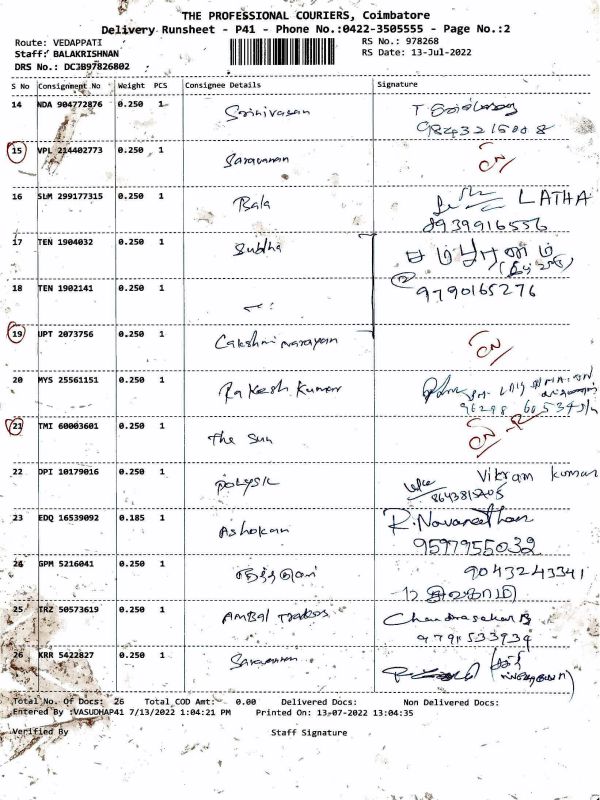 THE PROFESSIONAL COURIERS, Coimbatore
Delivery Runsheet - P41 - Phone No.:0422-3505555 - Page No.:2
Route: VEDAPPATI RS No.: 978268
Staff: BALAKRISHNAN RS Date: 13-Jul-2022
DRS No.: DCJB97826802
S No Consignment No Weight PCS Consignee Details Signature
14 NDA 904772876 0.250 1 Srinivasan
9843216008
15 VPL 214402773 0.250 1 Saravanan CN
16 SLM 299177315 0.250 1 Bala LATHA
8939916556
17 TEN 1904032 0.250 1 Subha
18 TEN 1902141 0.250 1 9790165276
19 UPT 2073756 0.250 1 Lakshmi narayan CN
20 MYS 25561151 0.250 1 Rakesh Kumar
96298 60534
21 TMI 60003601 0.250 1 The Sun CN
22 DPI 10179016 0.250 1 Vikram kumar
23 EDQ 16539092 0.185 1 Ashokan R. Navaneethan
9597955032
24 GPM 5216041 0.250 1 9043243341
25 TRZ 50573619 0.250 1 Ambal Traders Chandrasekar
26 KRR 5422827 0.250 1 Saravanan
Total No. Of Docs: 26 Total COD Amt: 0.00 Delivered Docs: Non Delivered Docs:
Entered By :VASUDHAP41 7/13/2022 1:04:21 PM Printed On: 13-07-2022 13:04:35
Verified By Staff Signature